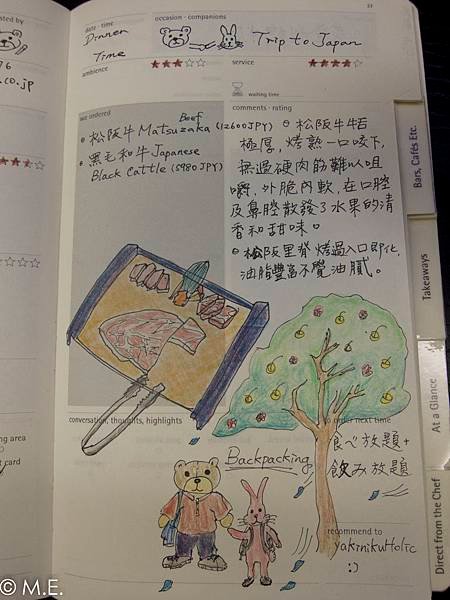 33
sted by
date · time
occasion · companions
Dinner
Time
Trip to Japan
76
.co.jp
ambience
service
waiting time
comments · rating
Beef
松阪牛 Matsuzaka (12600JPY)
黑毛和牛 Japanese
Black Cattle (5980JPY)
松阪牛牛舌
極厚，烤熟一口咬下，
無過硬肉筋難以咀
嚼，外脆內軟，在口腔
及鼻腔散發了水果的清
香和甜味。
松阪里脊烤過入口即化，
油脂豐富不覺油膩。
conversation, thoughts, highlights
to order next time
食べ放題+
飲み放題
Backpacking
recommend to
yakinikuHolic
:)
ing area
card
Bars, Cafés Etc.
Takeaways
At a Glance
Direct from the Chef
© M.E.